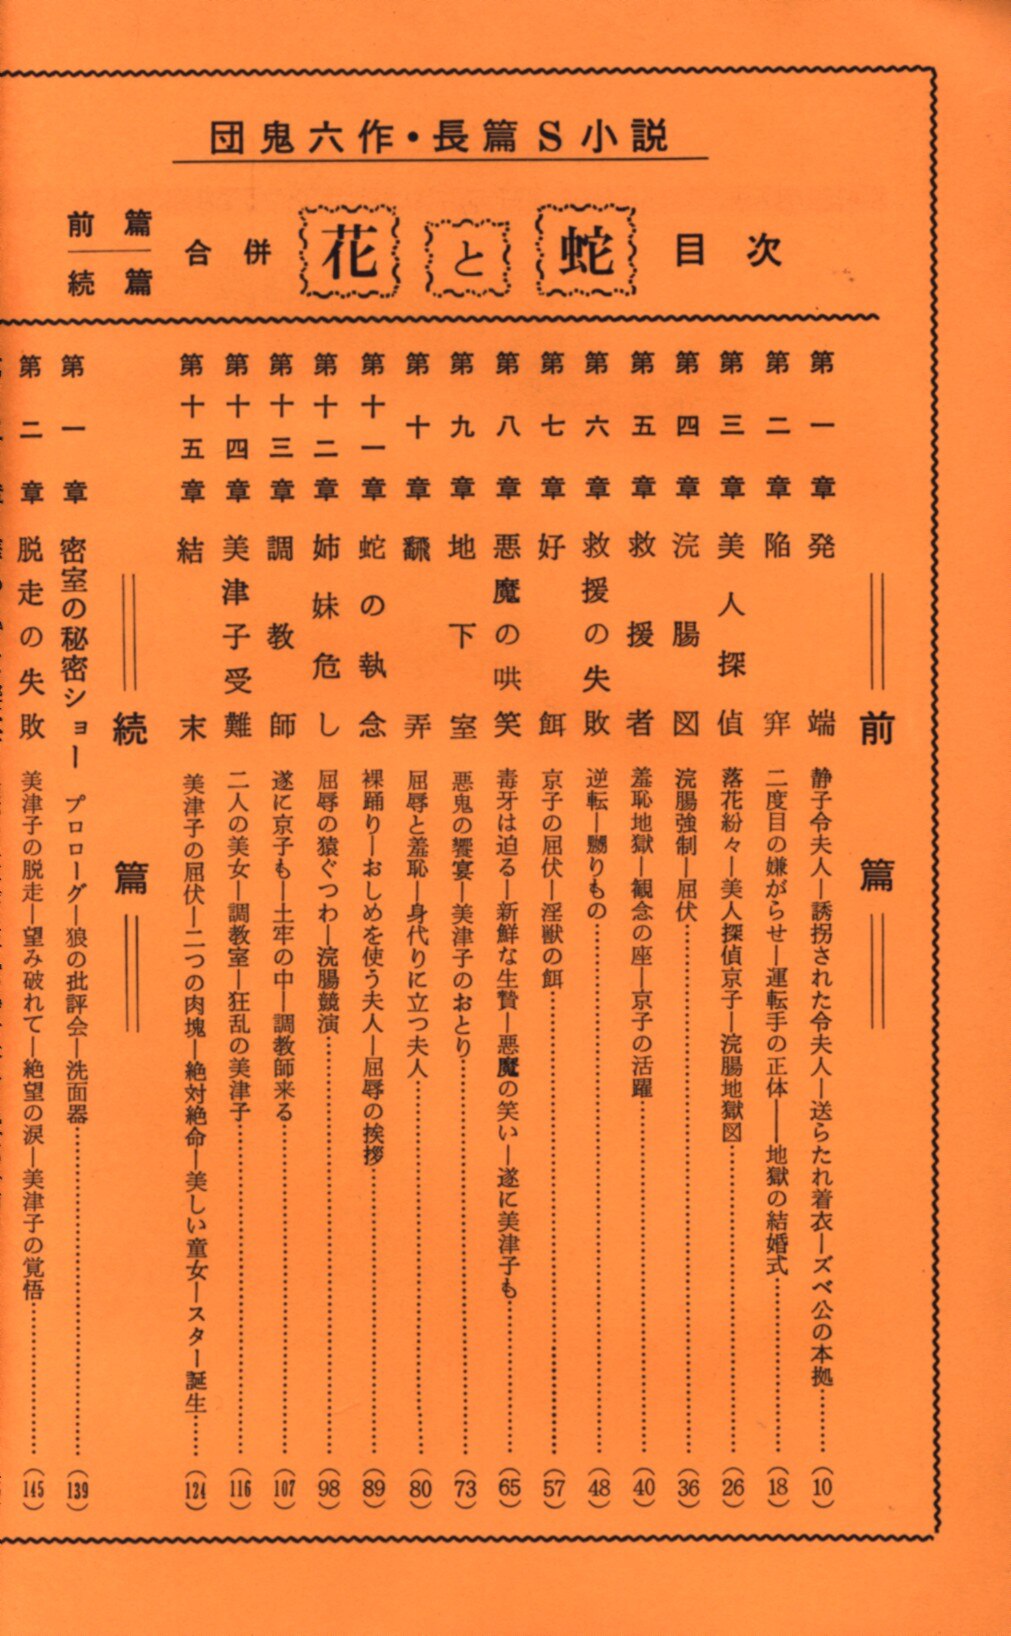 団鬼六作・長篇S小説
前篇
続篇
合併
花と蛇
目次
前篇
第一章 発端 静子令夫人―誘拐された令夫人―送られた着衣―ズベ公の本拠………(10)
第二章 陥穽 二度目の嫌がらせ―運転手の正体――地獄の結婚式………(18)
第三章 美人探偵 落花紛々―美人探偵京子―浣腸地獄図………(26)
第四章 浣腸図 浣腸強制―屈伏………(36)
第五章 救援者 羞恥地獄―観念の座―京子の活躍………(40)
第六章 救援の失敗 逆転―嬲りもの………(48)
第七章 好餌 京子の屈伏―淫獣の餌………(57)
第八章 悪魔の哄笑 毒牙は迫る―新鮮な生贄―悪魔の笑い―遂に美津子も………(65)
第九章 地下室 悪鬼の饗宴―美津子のおとり………(73)
第十章 飜弄 屈辱と羞恥―身代りに立つ夫人………(80)
第十一章 蛇の執念 裸踊り―おしめを使う夫人―屈辱の挨拶………(89)
第十二章 姉妹危し 屈辱の猿ぐつわ―浣腸競演………(98)
第十三章 調教師 遂に京子も―土牢の中―調教師来る………(107)
第十四章 美津子受難 二人の美女―調教室―狂乱の美津子………(116)
第十五章 結末 美津子の屈伏―二つの肉塊―絶対絶命―美しい童女―スター誕生………(124)
続篇
第一章 密室の秘密ショー プロローグ―狼の批評会―洗面器………(139)
第二章 脱走の失敗 美津子の脱走―望み破れて―絶望の涙―美津子の覚悟………(145)